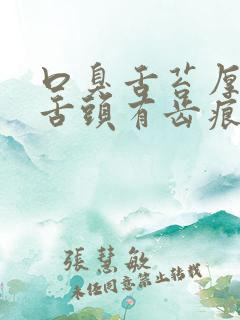 口臭舌苔厚
舌頭有齿痕
張慧敏
未经同意禁止转载